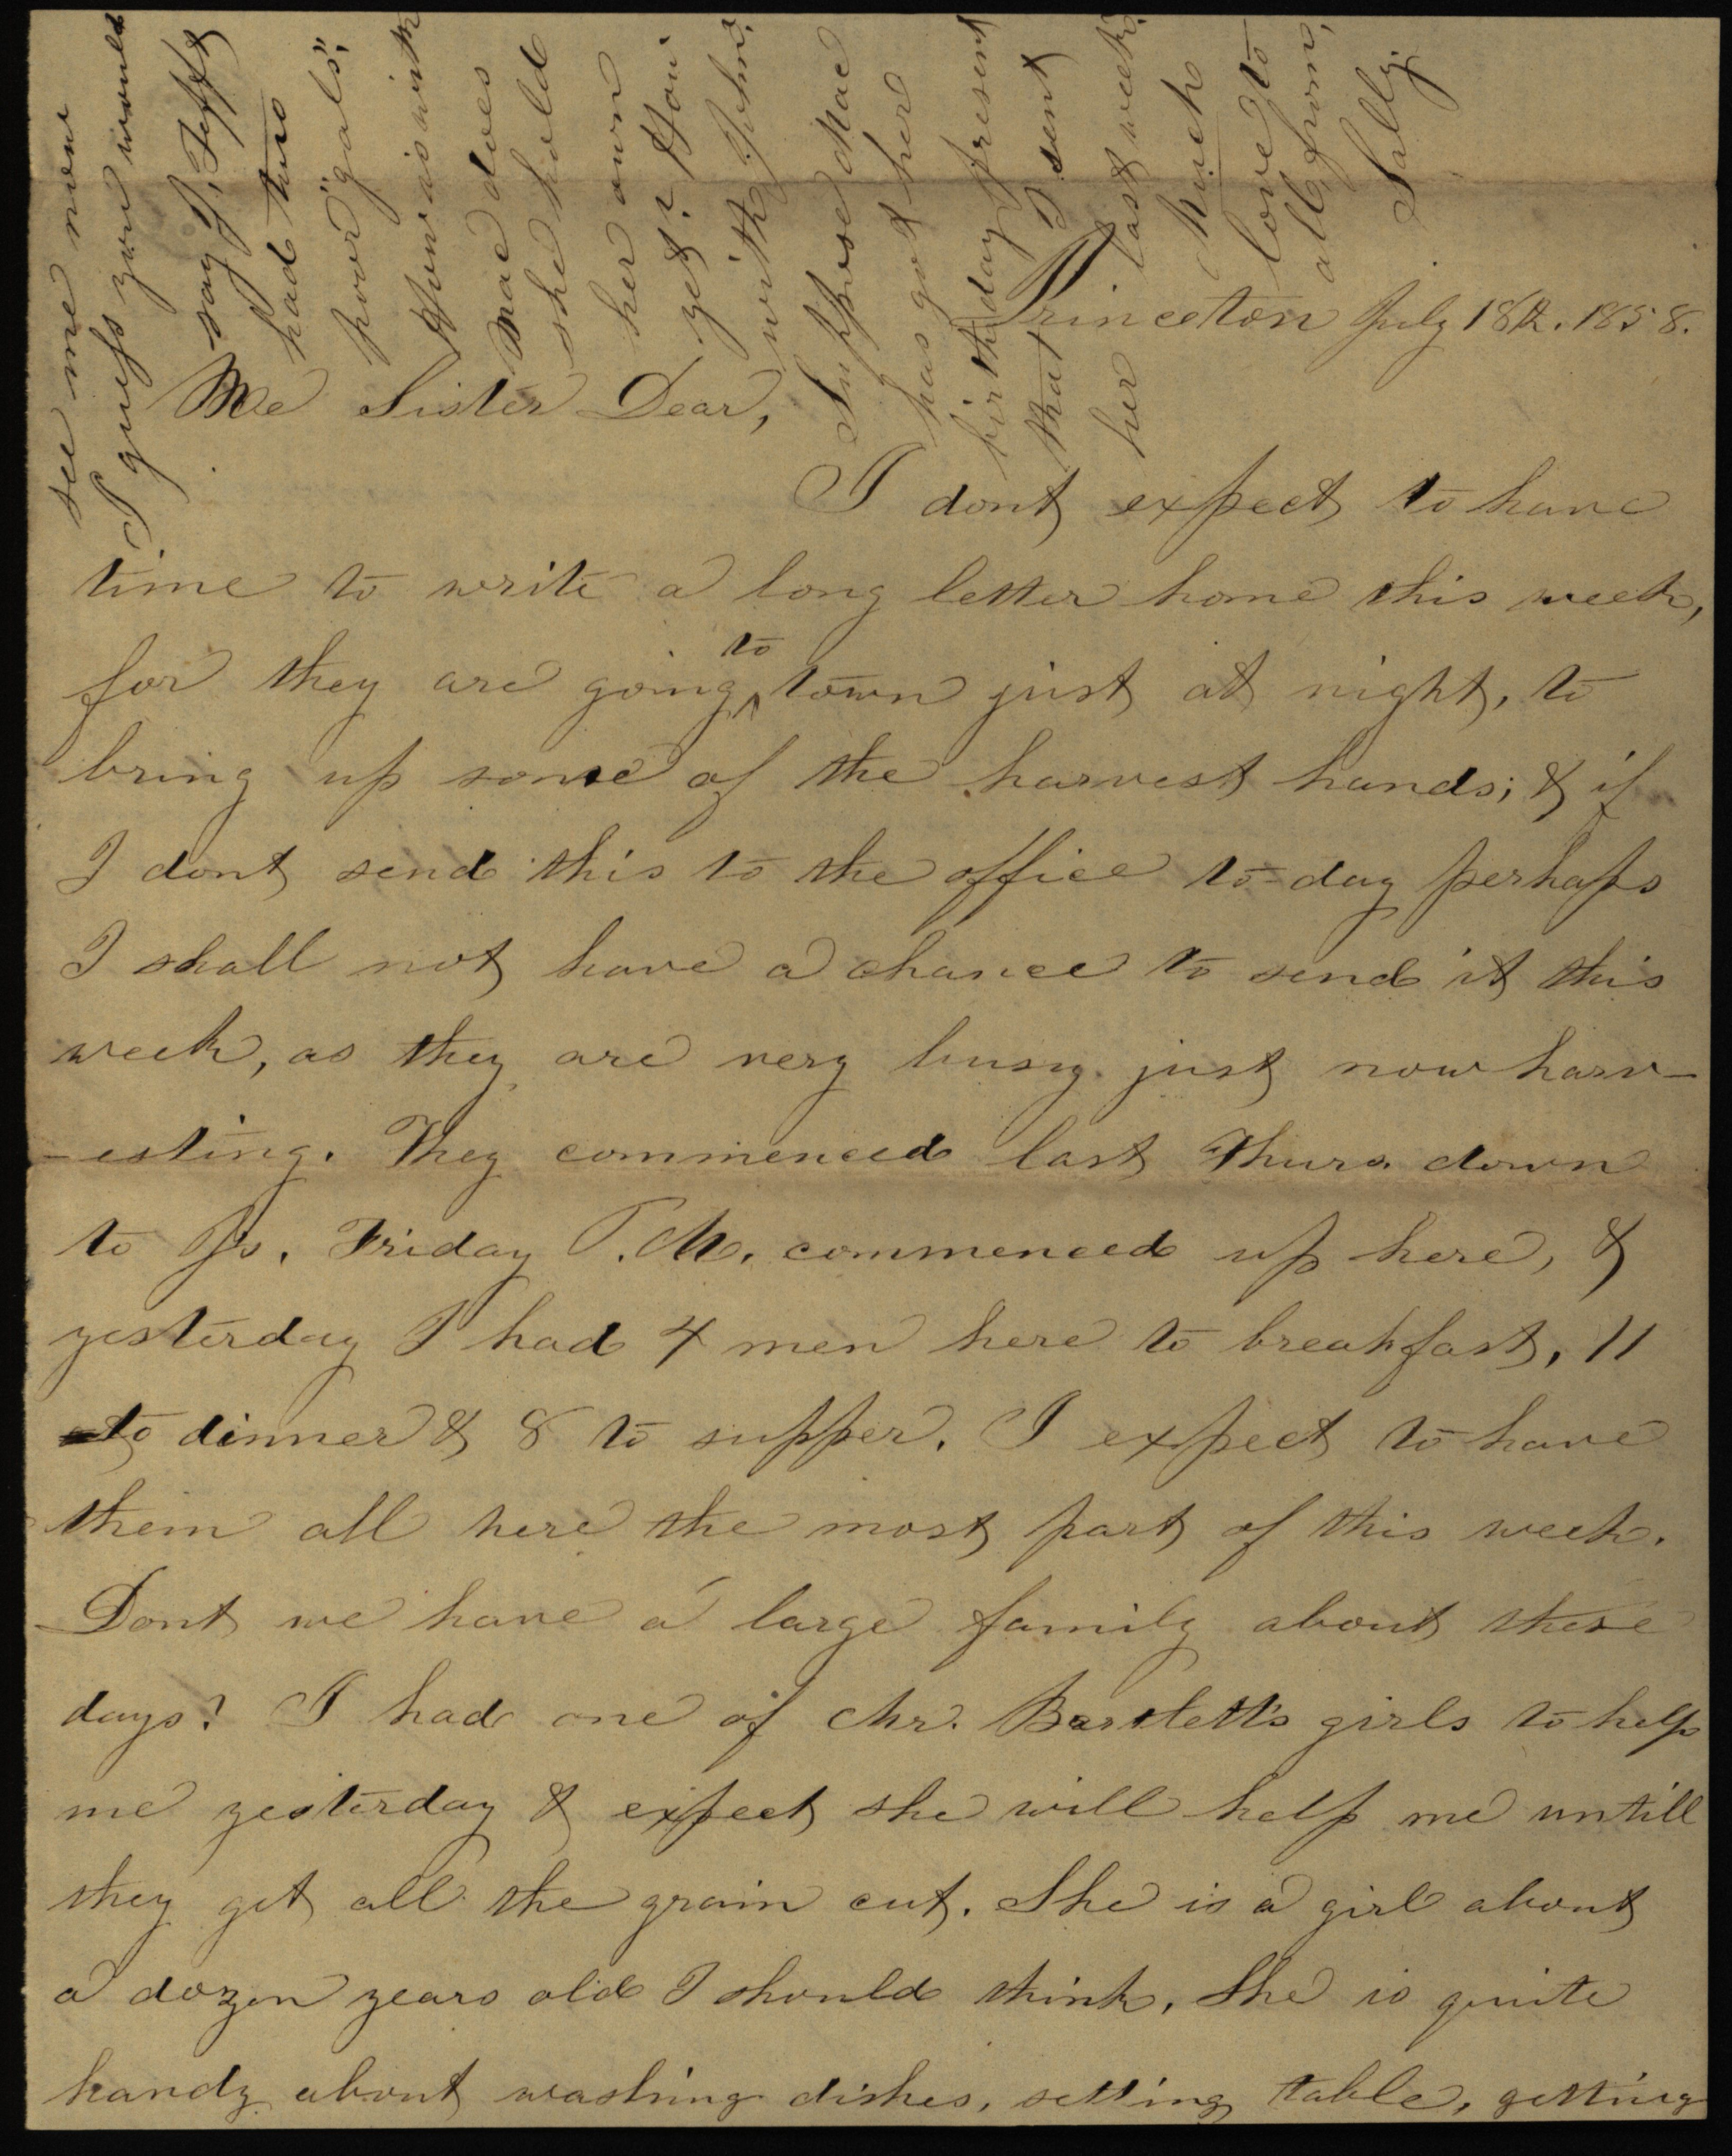 Princeton July 18th. 1858.
Me Sister Dear,
I dont expect to have
time to write a long letter home this week,
for they are going to town just at night, to
bring up some of the harvest hands; & if
I dont send this to the office to-day perhaps
I shall not have a chance to send it this
week, as they are very busy just now harv-
-esting. They commenced last Thurs. down
to Js. Friday P.M. commenced up here, &
yesterday I had 4 men here to breakfast, 11
to dinner & 8 to supper. I expect to have
them all here the most part of this week.
Dont we have a large family about these
days? I had one of Mr. Bartlett's girls to help
me yesterday & expect she will help me untill
they get all the grain cut. She is a girl about
a dozen years old I should think. She is quite
handy about washing dishes, setting table, getting
see me now
I guess you would
say I, Jeffy
had two
power "gals".
How is aint
Mac does
she hold
her own
yet? How
with John.
Suppose Mac
has got her
birthday present
that I sent
her last week.
Much
love to
all, from,
Sally.